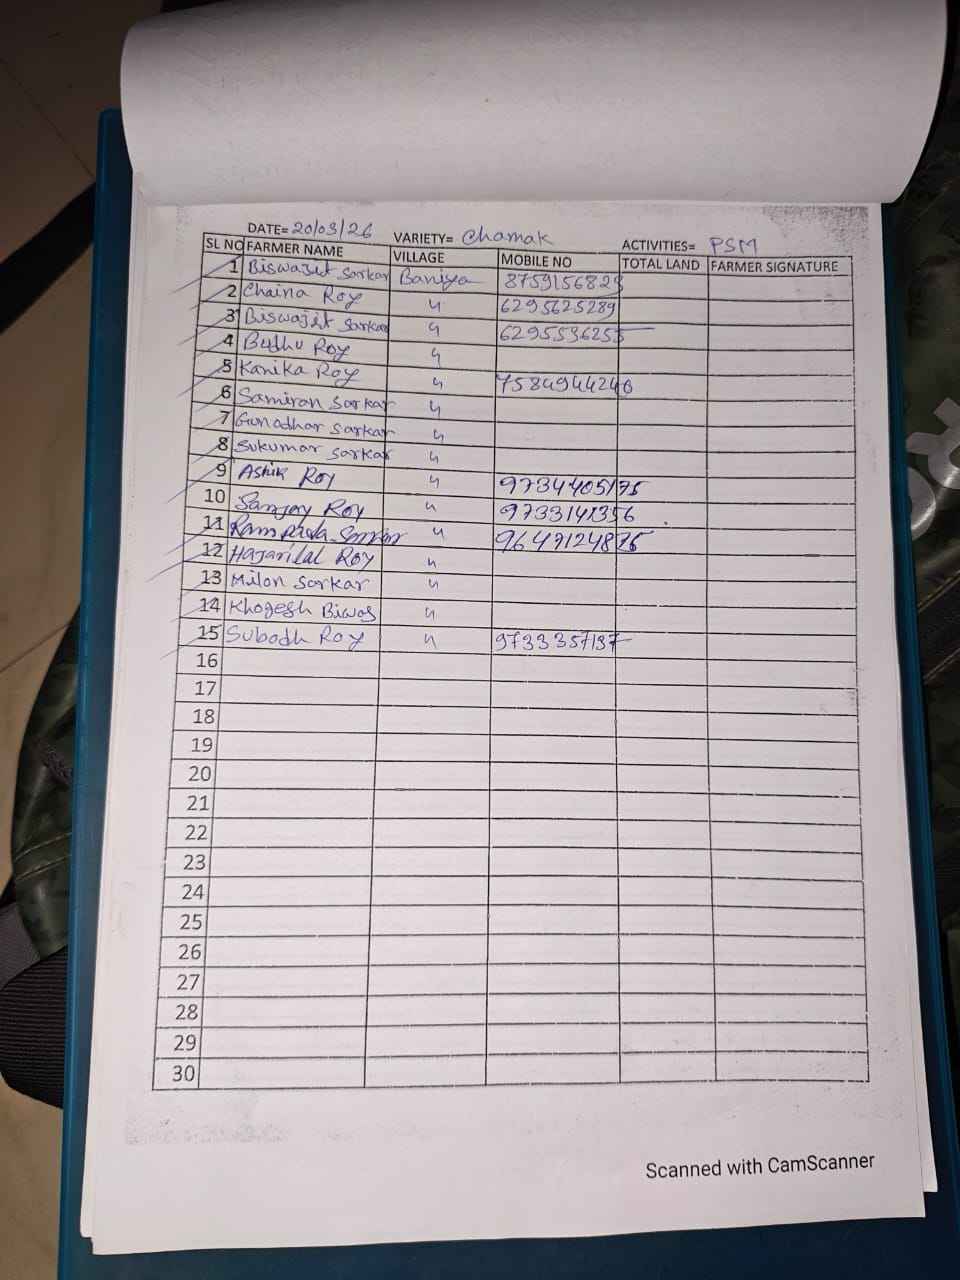 DATE= 20/03/26 VARIETY= Chamak ACTIVITIES= PSM
SL NO FARMER NAME VILLAGE MOBILE NO TOTAL LAND FARMER SIGNATURE
1 Biswajit Sarkar Baniya 8759156829
2 Chaina Roy 〃 6295625289
3 Biswajit Sarkar 〃 6295536255
4 Budhu Roy 〃
5 Kanika Roy 〃 7584944246
6 Samiran Sarkar 〃
7 Gunadhar Sarkar 〃
8 Sukumar Sarkar 〃
9 Ashik Roy 〃 9734405175
10 Sanjoy Roy 〃
11 Rampada Sarkar 〃 9647124875
12 Hajarilal Roy 〃
13 Milon Sarkar 〃
14 Khogesh Biwas 〃
15 Subodh Roy 〃 9733357137
16
17
18
19
20
21
22
23
24
25
26
27
28
29
30
Scanned with CamScanner